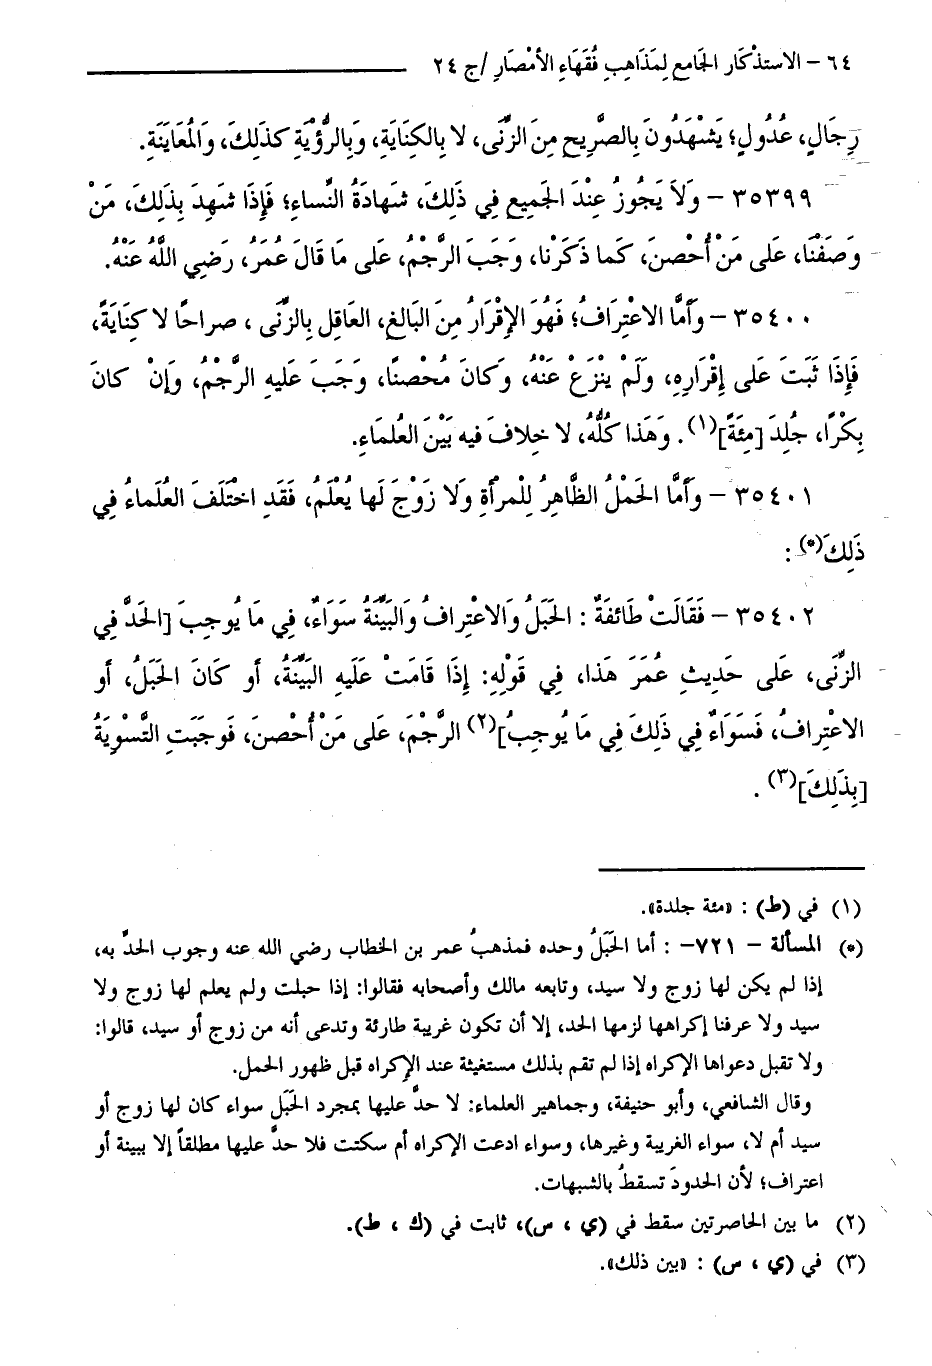 ٦٤ – الاستذْكَار الجَامع لِمَذَاهِبِ فُقَهَاءِ الأمْصَارِ /ج ٢٤
رِجَالٍ، عُدُولٍ؛ يَشْهَدُونَ بِالصَّرِيحِ مِنَ الزِّنَى، لا بِالكِنَايَةِ، وَبِالرُّؤْيَةِ كذَلِكَ، وَالمُعَايَنَةِ.
٣٥٣٩٩ – وَلاَ يَجُوزُ عِنْدَ الجَمِيعِ فِي ذَلِكَ، شهَادَةُ النِّساءِ؛ فَإِذَا شَهِدَ بِذَلِكَ، مَنْ
وَصَفْنَا، عَلى مَنْ أُحْصنَ، كَما ذَكَرْنا، وجَبَ الرَّجْمُ، عَلى مَا قالَ عُمَرُ، رَضِي اللَّهُ عَنْهُ.
٣٥٤٠٠ – وأمَّا الاعْتِرافُ؛ فَهُوَ الإقْرارُ مِنَ البَالغِ، العَاقِلِ بِالزِّنَى ، صراحًا لا كِنَايَةً،
فَإِذَا ثَبَتَ عَلَى إِقْرَارِهِ، وَلَمْ يَنْزِعْ عَنْهُ، وَكَانَ مُحْصنًا، وجَبَ عَليهِ الرَّجْمُ، وإنْ كانَ
بِكْرًا، جُلِدَ [مِئَةً](١). وَهَذا كُلُّهُ، لا خِلافَ فيهِ بَيْنَ العُلمَاءِ.
٣٥٤٠١ – وَأَمَّا الحَمْلُ الظَّاهِرُ لِلْمرأةِ وَلا زَوْجَ لَها يُعْلَمُ، فَقَدِ اخْتَلَفَ العُلَماءُ فِي
ذَلِكَ(*) :
٣٥٤٠٢ – فَقَالَتْ طَائفَةٌ : الحَبَلُ وَالاعْتِرافُ وَالبَيِّنَةُ سَوَاءٌ، فِي مَا يُوجِبَ [الحَدَّ فِي
الزِّنَى، عَلى حَدِيثِ عُمَرَ هَذا، فِي قَوْلِهِ: إِذَا قَامَتْ عَلَيهِ البَيِّنَةُ، أو كَانَ الحَبَلُ، أو
الاعْتِرافُ، فَسَوَاءٌ فِي ذَلِكَ فِي مَا يُوجِبُ](٢) الرَّجْمَ، عَلى مَنْ أُحْصنَ، فَوجَبَتِ التَّسْوِيَةُ
[بِذَلِكَ](٣) .
(١) في (ط) : «مئة جلدة».
(*) المسألة – ٧٢١– : أما الحَبَلُ وحده فمذهبُ عمر بن الخطاب رضي الله عنه وجوب الحدِّ به،
إذا لم يكن لها زوج ولا سيد، وتابعه مالك وأصحابه فقالوا: إذا حبلت ولم يعلم لها زوج ولا
سيد ولا عرفنا إكراهها لزمها الحد، إلا أن تكون غريبة طارئة وتدعى أنه من زوج أو سيد، قالوا:
ولا تقبل دعواها الإكراه إذا لم تقم بذلك مستغيثة عند الإكراه قبل ظهور الحمل.
وقال الشافعي، وأبو حنيفة، وجماهير العلماء: لا حدَّ عليها بمجرد الحَبَل سواء كان لها زوج أو
سيد أم لا، سواء الغريبة وغيرها، وسواء ادعت الإكراه أم سكتت فلا حدَّ عليها مطلقاً إلا ببينة أو
اعتراف؛ لأن الحدودَ تسقطُ بالشبهات.
(٢) ما بين الحاصرتين سقط في (ي ، س)، ثابت في (ك ، ط).
(٣) في (ي ، س) : «بين ذلك».